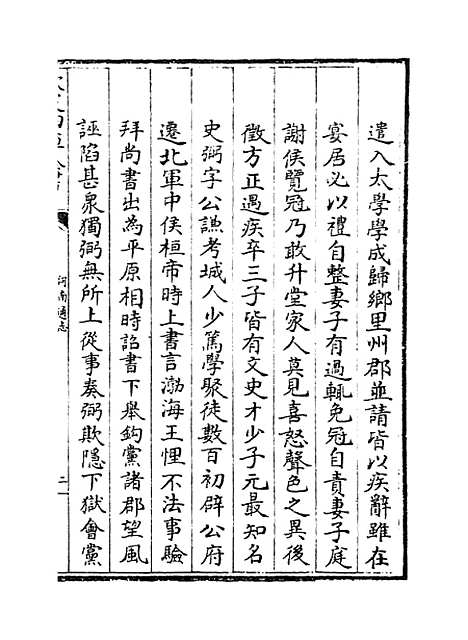 遣入太學學成歸鄉里州郡並請皆以疾辭雖在
宴居必以禮自整妻子有過輒免冠自責妻子庭
謝侯覽冠乃敢升堂家人莫見喜怒聲色之異後
徵方正遇疾卒三子皆有文史才少子元最知名
史弼字公謙考城人少篤學聚徒數百初辟公府
遷北軍中侯桓帝時上書言渤海王悝不法事驗
拜尚書出為平原相時詔書下舉鈎黨諸郡望風
誣陷甚衆獨弼無所上從事奏弼欺隱下獄會黨
河南通志
二